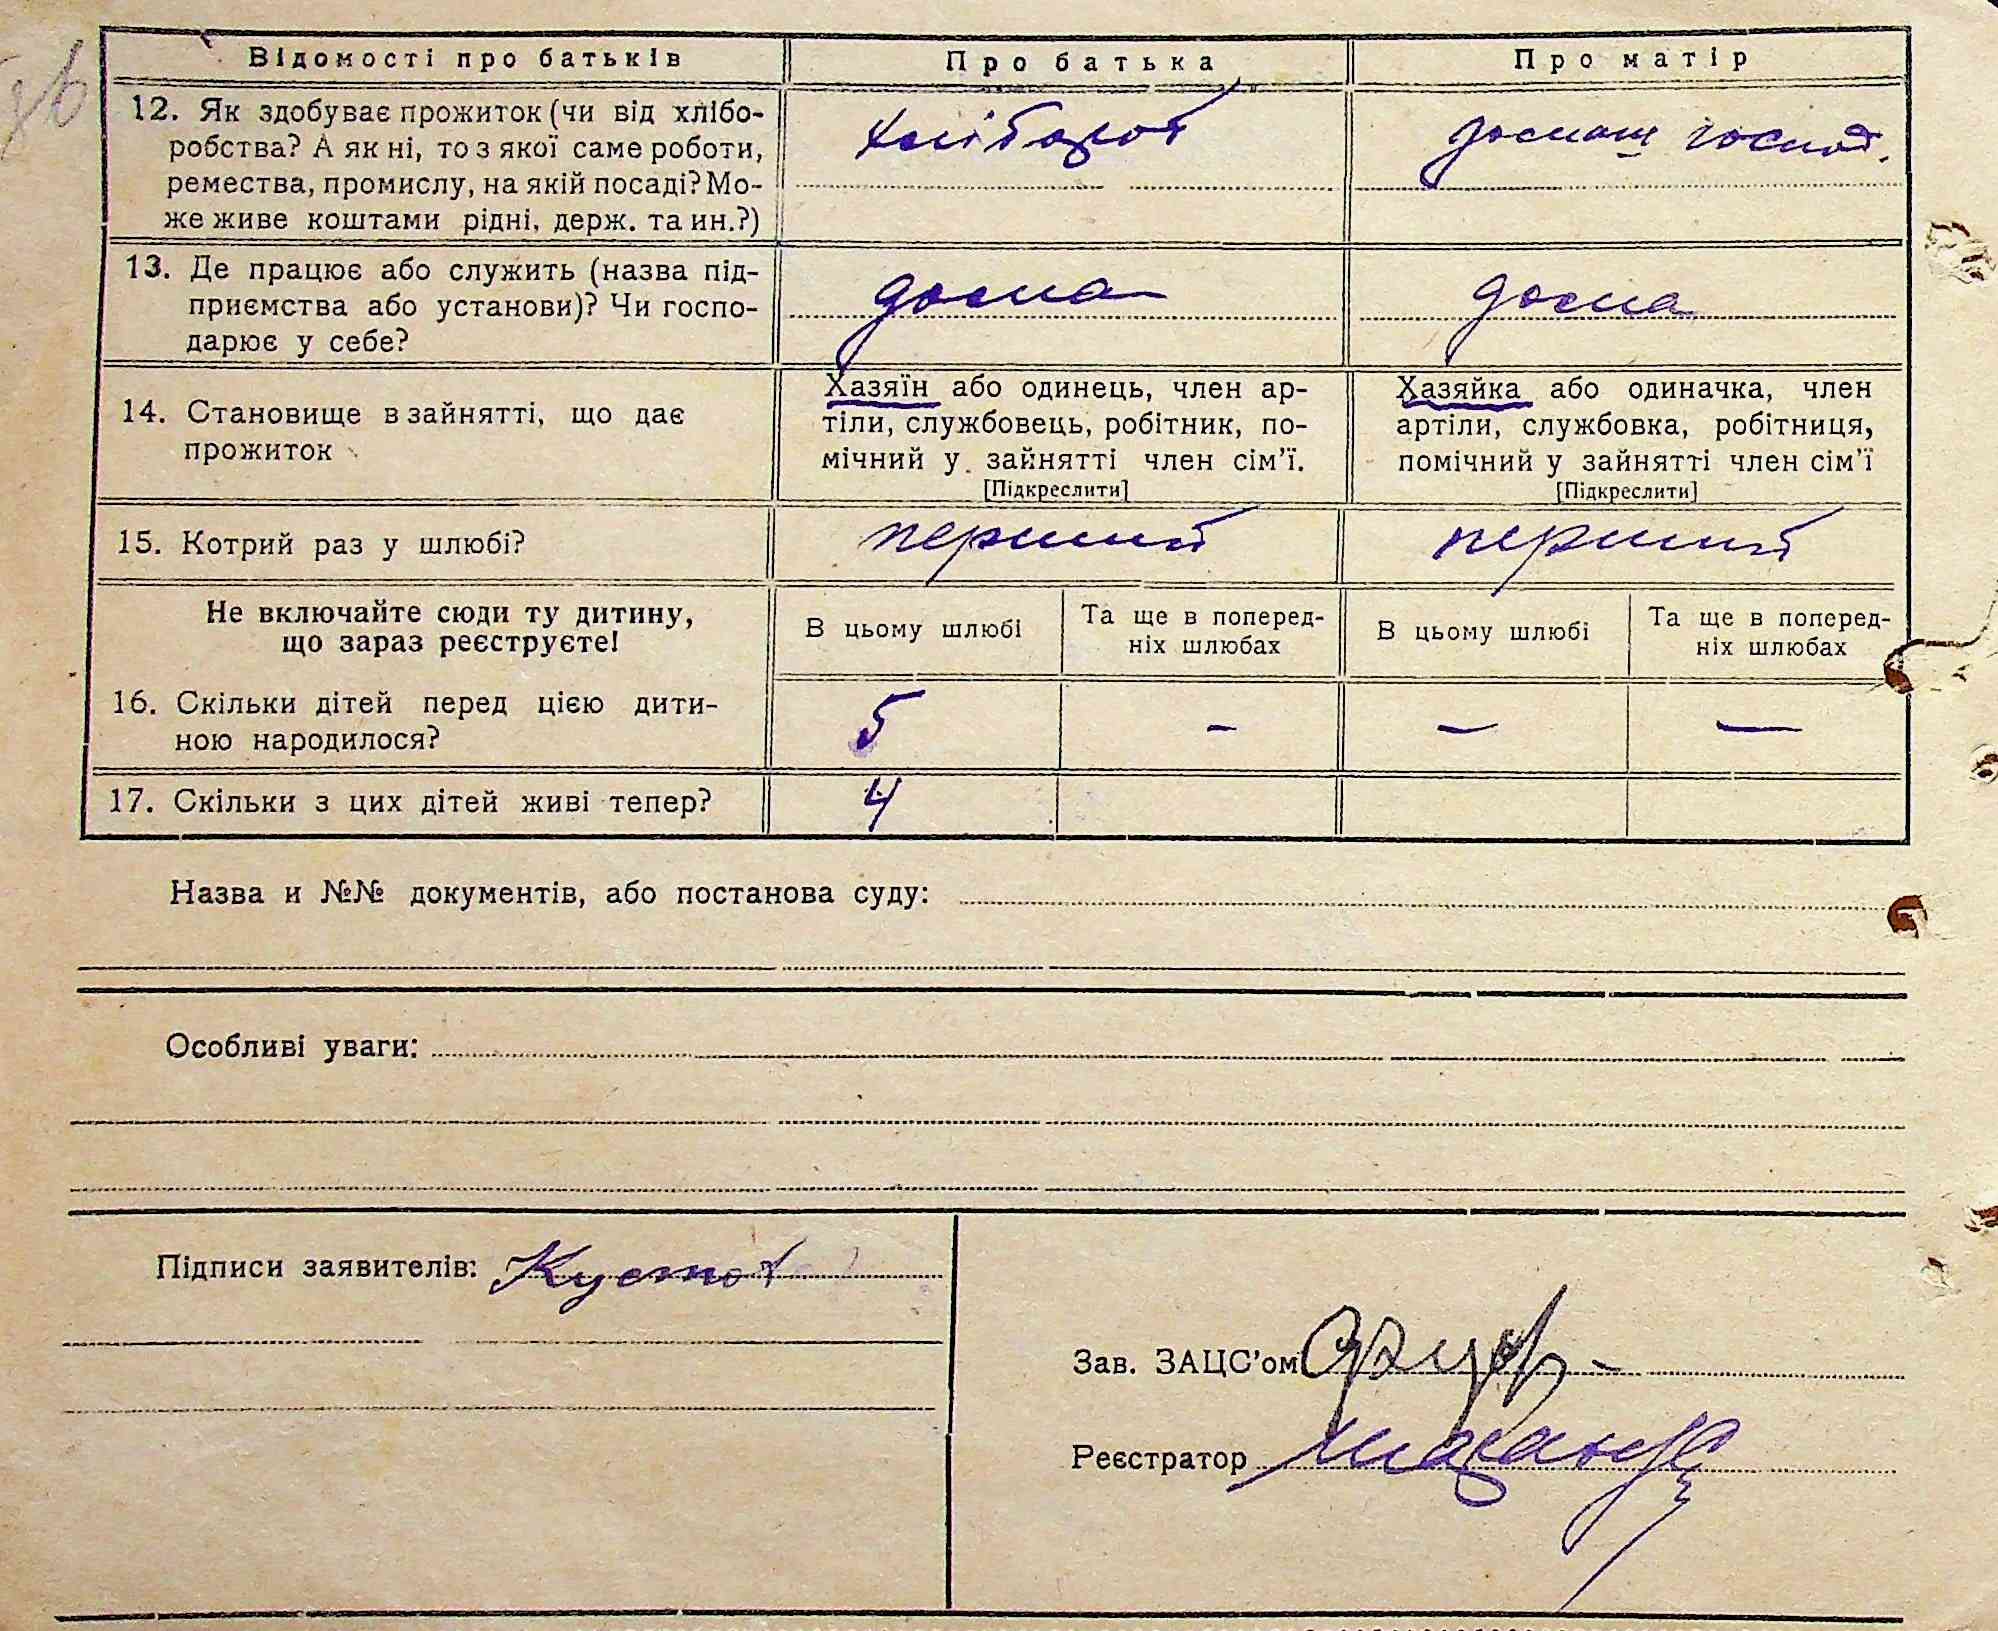 Відомості про батьків Про батька Про матір
12. Як здобуває прожиток (чи від хлібо-
робства? А як ні, то з якої саме роботи,
ремества, промислу, на якій посаді? Мо-
же живе коштами рідні, держ. та ин.?)
хлібороб
домаш господ.
13. Де працює або служить (назва під-
приємства або установи)? Чи госпо-
дарює у себе?
дома
дома
14. Становище в зайнятті, що дає
прожиток
Хазяїн або одинець, член ар-
тіли, службовець, робітник, по-
мічний у зайнятті член сім'ї.
[Підкреслити]
Хазяйка або одиначка, член
артіли, службовка, робітниця,
помічний у зайнятті член сім'ї
[Підкреслити]
15. Котрий раз у шлюбі? перший перший
Не включайте сюди ту дитину,
що зараз реєструєте!
В цьому шлюбі
Та ще в поперед-
ніх шлюбах
В цьому шлюбі
Та ще в поперед-
ніх шлюбах
16. Скільки дітей перед цією дити-
ною народилося?
5 - - -
17. Скільки з цих дітей живі тепер? 4
Назва и №№ документів, або постанова суду:
Особливі уваги:
Підписи заявителів:
Зав. ЗАЦС'ом
Реєстратор